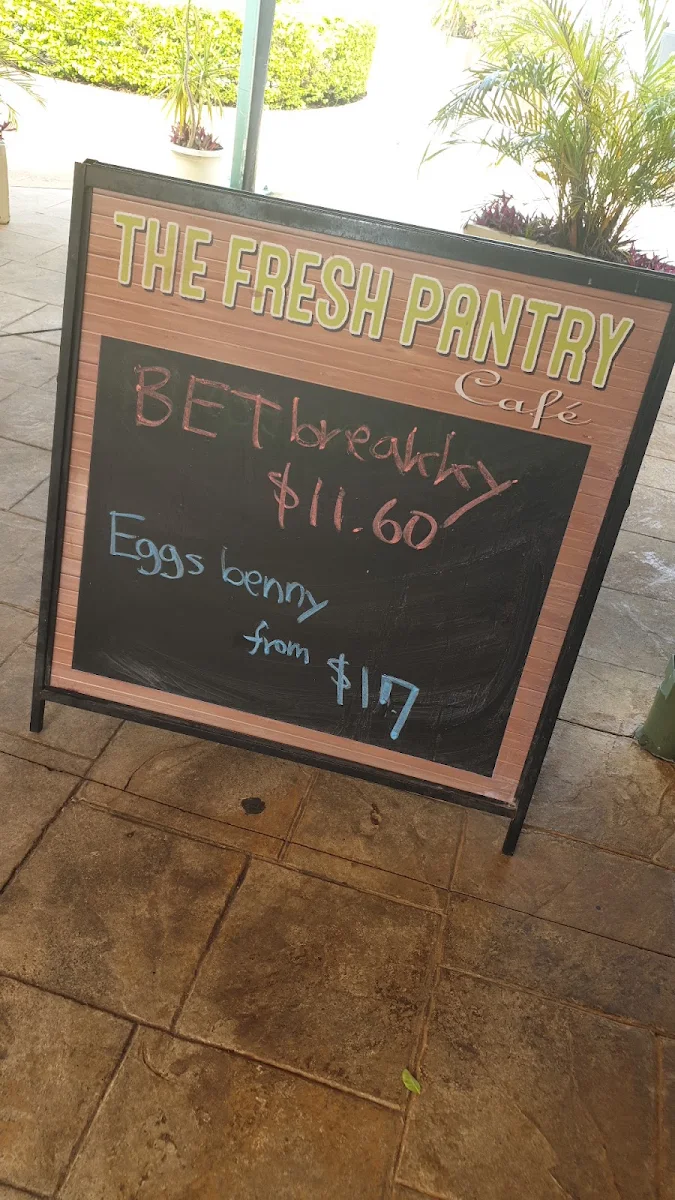 THE FRESH PANTRY
Café
BET breakky
$11.60
Eggs benny
from $17